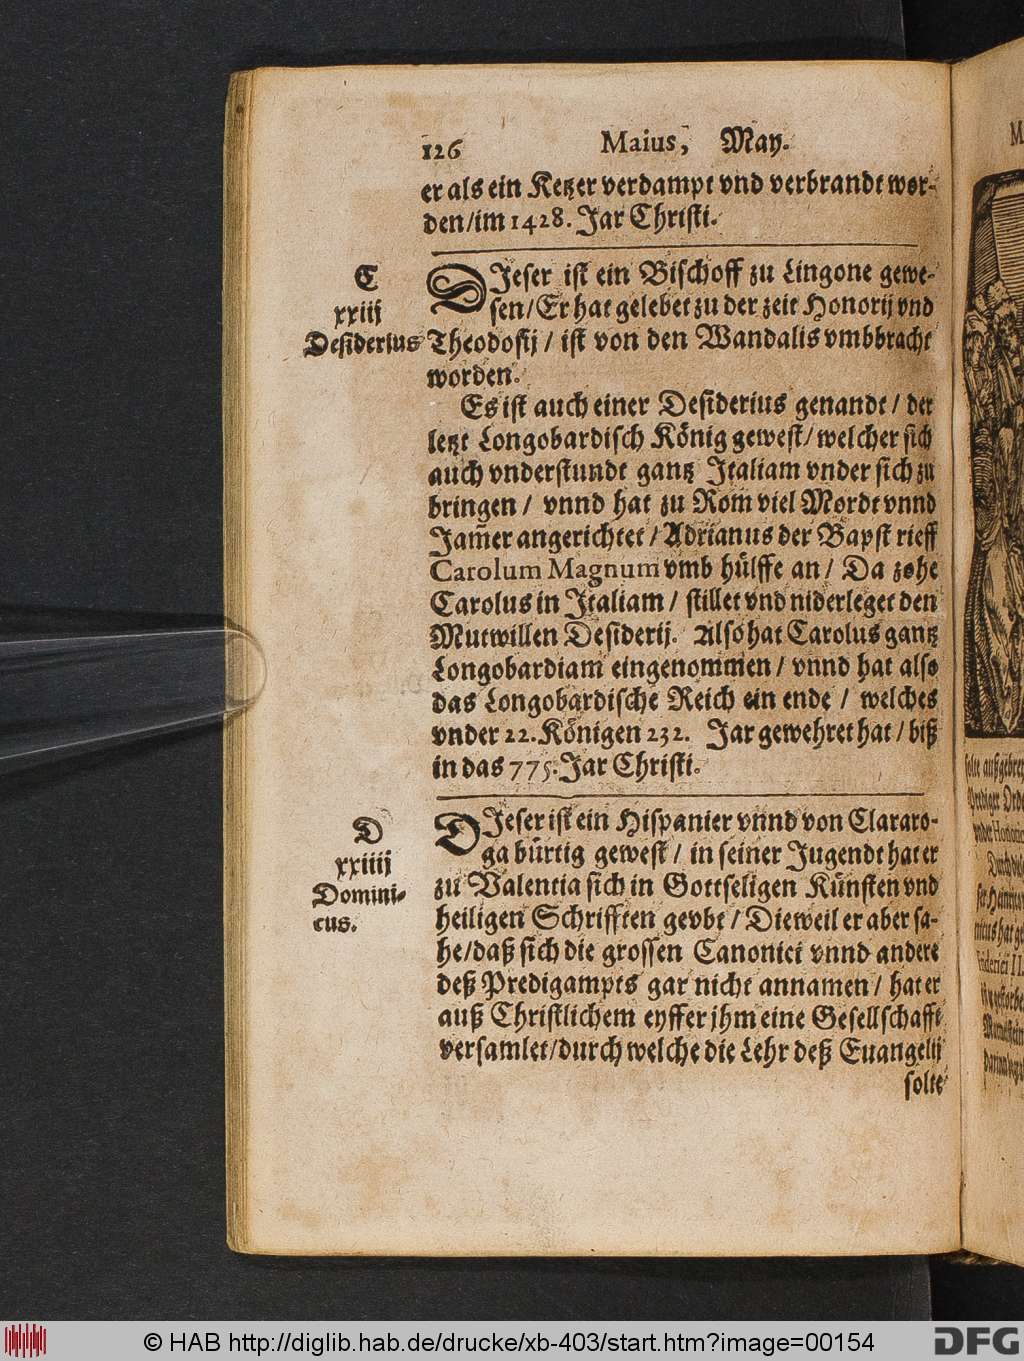 126 Maius, May.
er als ein Ketzer verdampt vnd verbrandt wor-
den/im 1428. Jar Christi.
C
xxiij
Desiderius
DIeser ist ein Bischoff zu Lingone gewe-
sen/Er hat gelebet zu der zeit Honorij vnd
Theodosij / ist von den Wandalis vmbbracht
worden.
Es ist auch einer Desiderius genandt / der
letzt Longobardisch König gewest/welcher sich
auch vnderstundt gantz Italiam vnder sich zu
bringen / vnnd hat zu Rom viel Mordt vnnd
Jam̃er angerichtet / Adrianus der Bapst rieff
Carolum Magnum vmb hülffe an / Da zohe
Carolus in Italiam / stillet vnd niderleget den
Mutwillen Desiderij. Also hat Carolus gantz
Longobardiam eingenommen / vnnd hat also
das Longobardische Reich ein ende / welches
vnder 22. Königen 232. Jar gewehret hat / biß
in das 775. Jar Christi.
D
xxiiij
Domini-
cus.
DIeser ist ein Hispanier vnnd von Clararo-
ga bürtig gewest / in seiner Jugendt hat er
zu Valentia sich in Gottseligen Künsten vnd
heiligen Schrifften gevbt / Dieweil er aber sa-
he/daß sich die grossen Canonici vnnd andere
deß Predigampts gar nicht annamen / hat er
auß Christlichem eyffer jhm eine Gesellschafft
versamlet/durch welche die Lehr deß Euangelij
solte
M
solte außgebrei
Prediger Orde
vnder Honorio
Durch di
ser Heinric
nicus hat ge
Friderici II
© HAB http://diglib.hab.de/drucke/xb-403/start.htm?image=00154
DFG